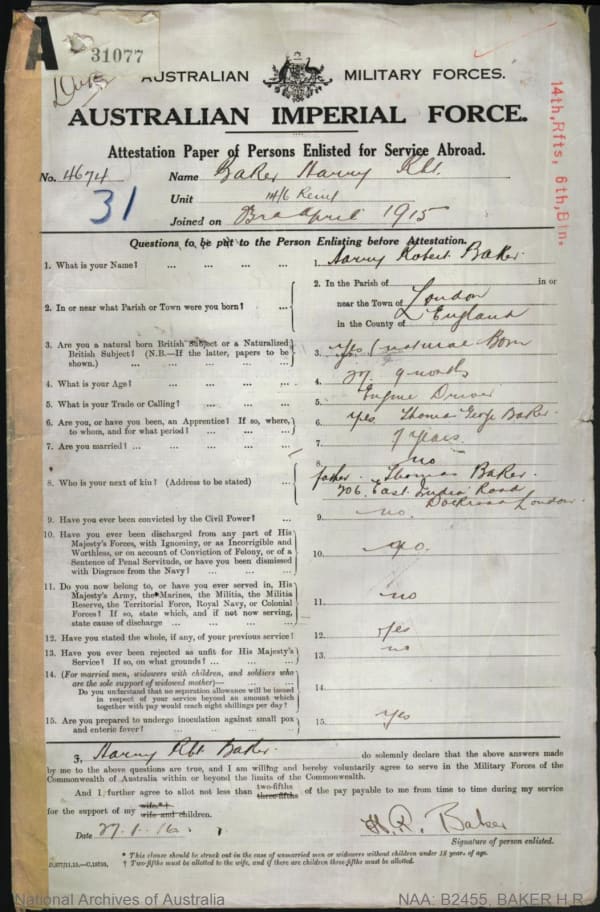 A
31077
AUSTRALIAN MILITARY FORCES.
AUSTRALIAN IMPERIAL FORCE.
Attestation Paper of Persons Enlisted for Service Abroad.
14th, Rfts, 6th, Btn.
No. 4674 Name Baker Harry Rbt.
31
Unit 14/6 Reinf
Joined on April 1915
Questions to be put to the Person Enlisting before Attestation.
1. What is your Name? ... ... ... ... 1. Harry Robert Baker.
2. In or near what Parish or Town were you born? ... 2. In the Parish of in or
near the Town of London
in the County of England
3. Are you a natural born British Subject or a Naturalized British Subject? (N.B.—If the latter, papers to be shown.) ... ... ... ... 3. yes (natural Born
4. What is your Age? ... ... ... ... 4. 27. 9 months
5. What is your Trade or Calling? ... ... ... 5. Engine Driver
6. Are you, or have you been, an Apprentice? If so, where, to whom, and for what period? ... ... ... 6. yes Thomas George Baker.
7 years.
7. Are you married? ... ... ... ... 7.
8. no
8. Who is your next of kin? (Address to be stated) ... father. Thomas Baker.
206. East India Road
London.
9. Have you ever been convicted by the Civil Power? ... 9. no.
10. Have you ever been discharged from any part of His Majesty's Forces, with Ignominy, or as Incorrigible and Worthless, or on account of Conviction of Felony, or of a Sentence of Penal Servitude, or have you been dismissed with Disgrace from the Navy? ... ... ... 10. no.
11. Do you now belong to, or have you ever served in, His Majesty's Army, the Marines, the Militia, the Militia Reserve, the Territorial Force, Royal Navy, or Colonial Forces? If so, state which, and if not now serving, state cause of discharge ... ... ... 11. no
12. Have you stated the whole, if any, of your previous service? 12. yes
13. Have you ever been rejected as unfit for His Majesty's Service? If so, on what grounds? ... ... 13. no
14. (For married men, widowers with children, and soldiers who are the sole support of widowed mother)— ... ...
Do you understand that no separation allowance will be issued in respect of your service beyond an amount which together with pay would reach eight shillings per day? 14.
15. Are you prepared to undergo inoculation against small pox and enteric fever? ... ... ... ... 15. yes
I, Harry Rbt Baker. do solemnly declare that the above answers made
by me to the above questions are true, and I am willing and hereby voluntarily agree to serve in the Military Forces of the
Commonwealth of Australia within or beyond the limits of the Commonwealth.
And I further agree to allot not less than two-fifths three-fifths of the pay payable to me from time to time during my service
for the support of my wife*† wife and children.
Date 27.1.16. H. R. Baker
Signature of person enlisted.
* This clause should be struck out in the case of unmarried men or widowers without children under 18 years of age.
† Two-fifths must be allotted to the wife, and if there are children three-fifths must be allotted.
National Archives of Australia NAA: B2455, BAKER H R